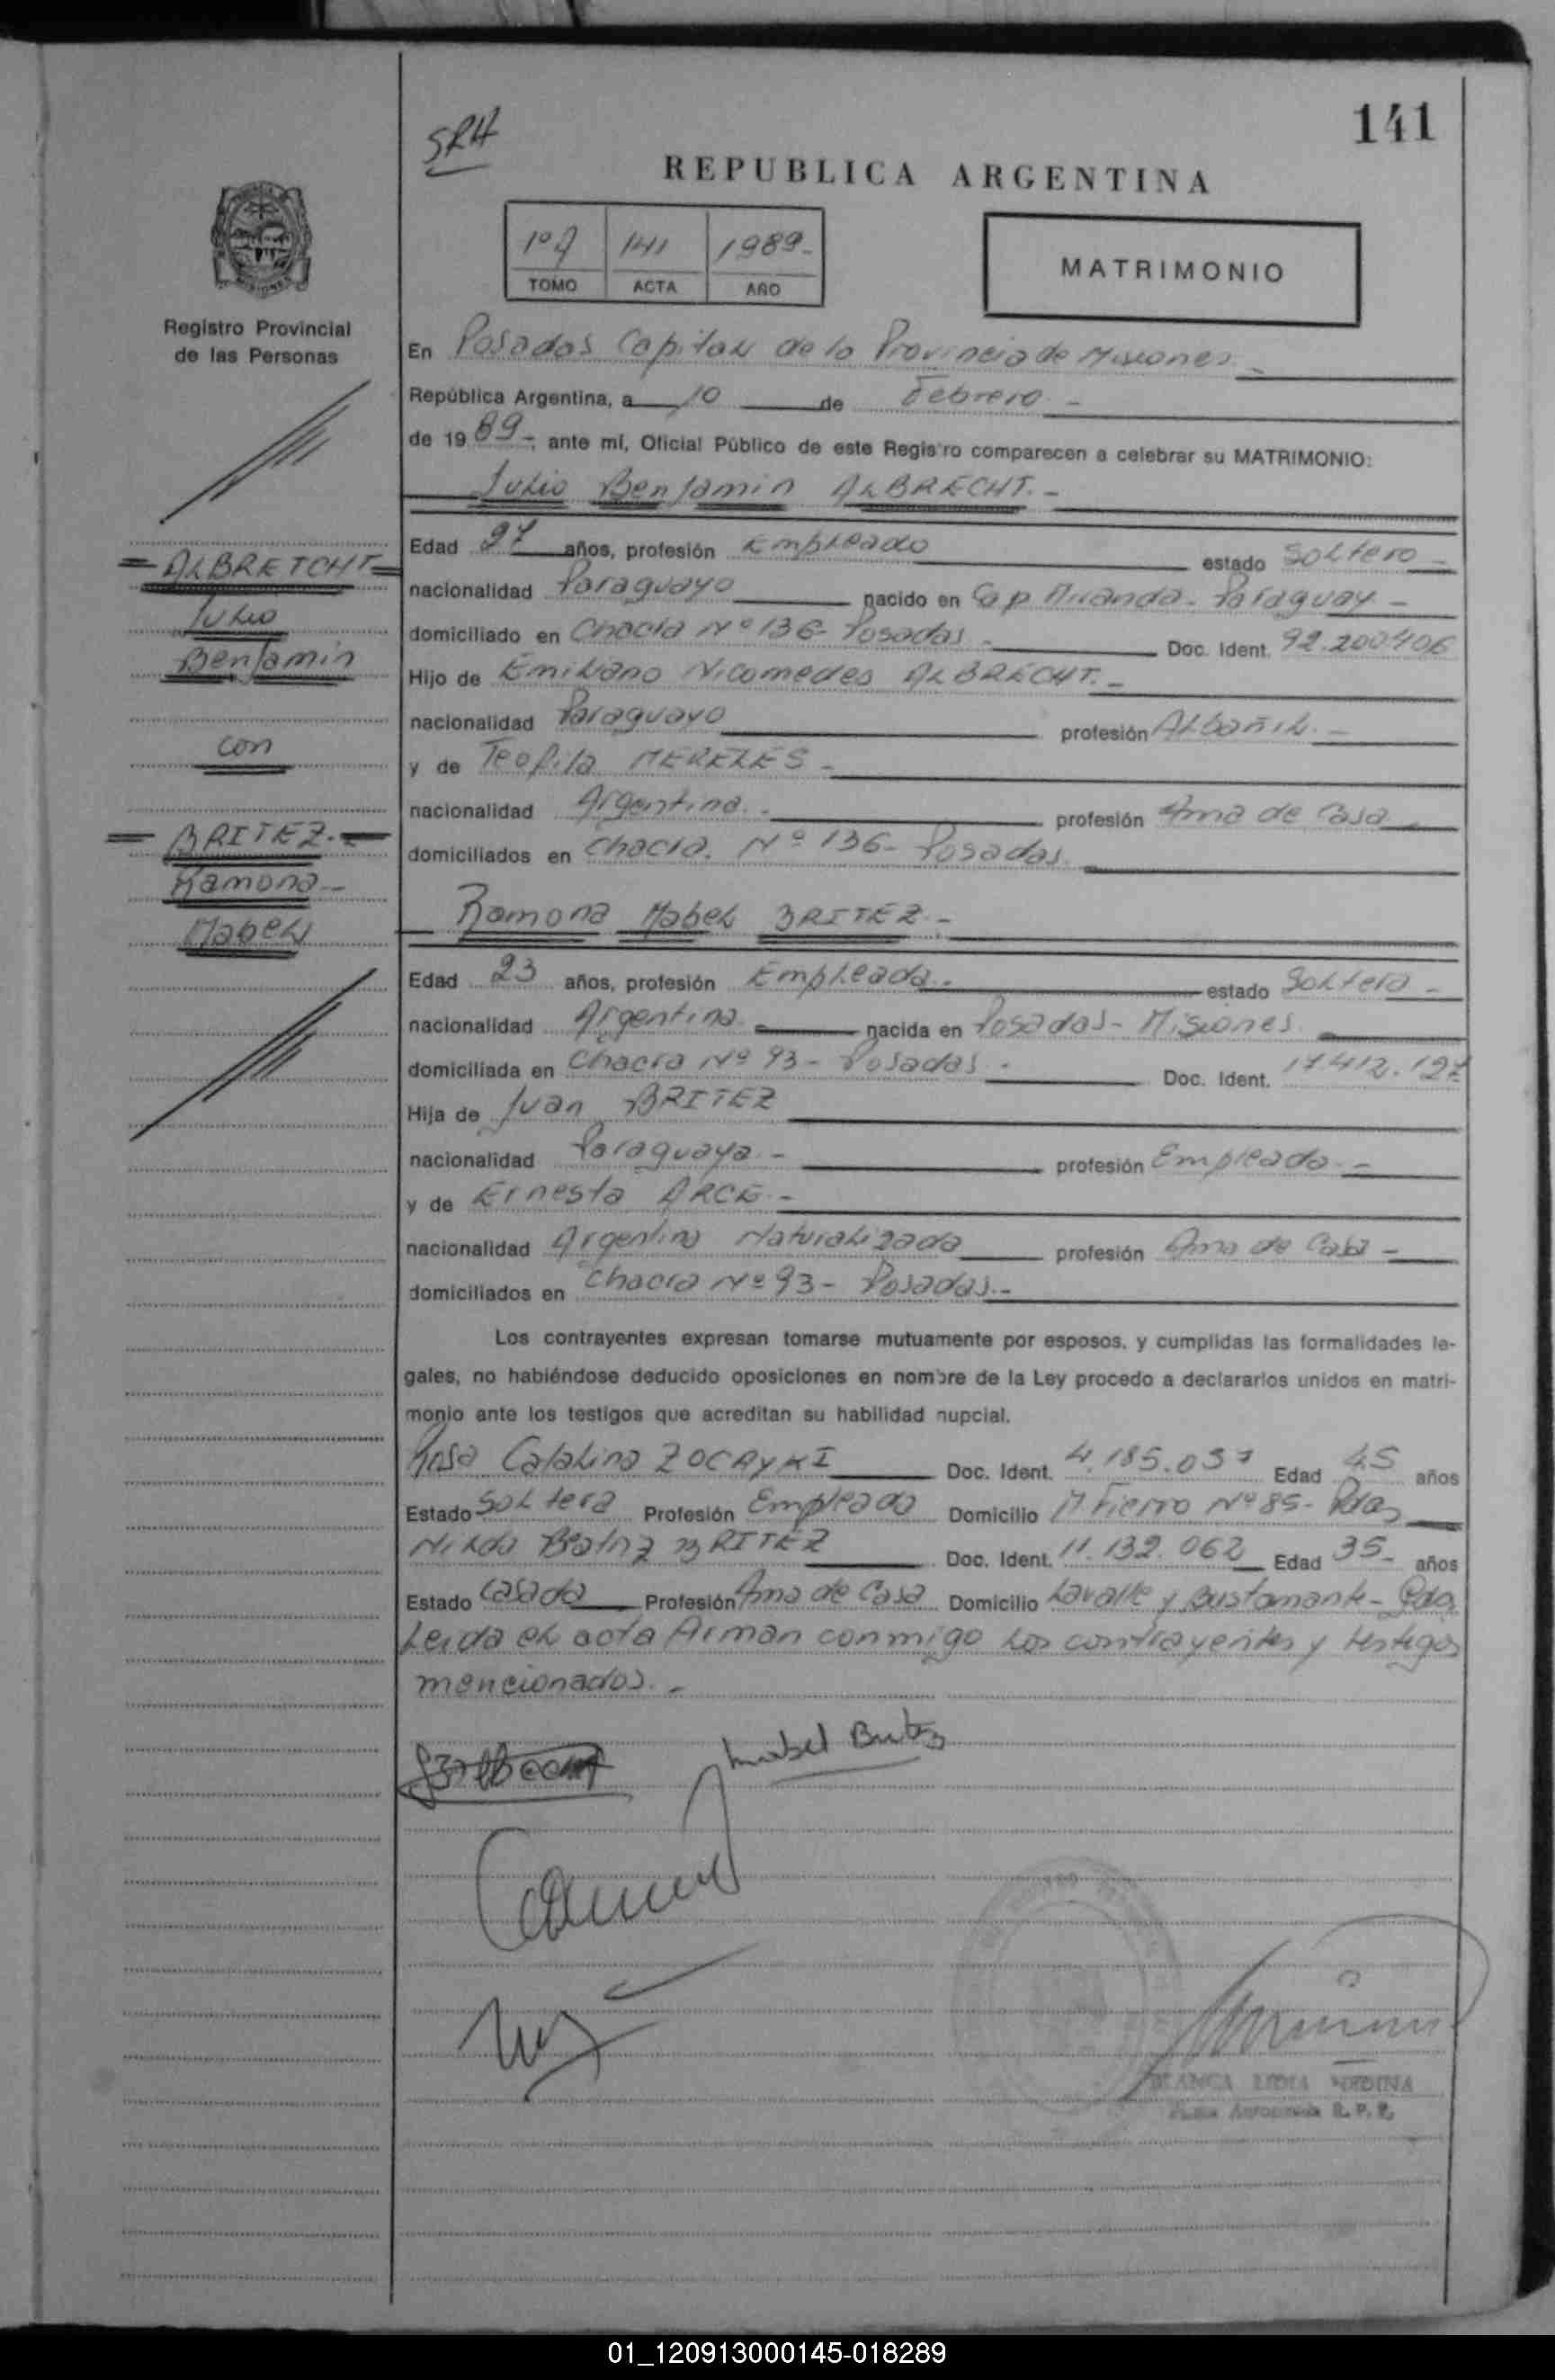 141
SRH
REPUBLICA ARGENTINA
1º 141 1989-
TOMO ACTA AÑO
MATRIMONIO
Registro Provincial
de las Personas
En Posadas Capital de la Provincia de Misiones -
República Argentina, a 10 de Febrero -
de 19 89 -, ante mí, Oficial Público de este Registro comparecen a celebrar su MATRIMONIO:
Julio Benjamin ALBRECHT. -
= ALBRETCHT =
Julio
Benjamin
con
= BRITEZ. =
Ramona -
Mabel
Edad 27 años, profesión Empleado estado Soltero -
nacionalidad Paraguayo nacido en Cap. Miranda - Paraguay -
domiciliado en Chacra Nº 136 - Posadas - Doc. Ident. 92.200406
Hijo de Emiliano Nicomedes ALBRECHT. -
nacionalidad Paraguayo profesión Albañil. -
y de Teofila MERELES -
nacionalidad Argentina. - profesión Ama de Casa -
domiciliados en Chacra. Nº 136 - Posadas.
Ramona Mabel BRITEZ. -
Edad 23 años, profesión Empleada. - estado Soltera -
nacionalidad Argentina nacida en Posadas - Misiones.
domiciliada en Chacra Nº 93 - Posadas - Doc. Ident. 17.412.127
Hija de Juan BRITEZ
nacionalidad Paraguaya - profesión Empleado. -
y de Ernesta ARCE. -
nacionalidad Argentina Naturalizada profesión Ama de Casa -
domiciliados en Chacra Nº 93 - Posadas. -
Los contrayentes expresan tomarse mutuamente por esposos, y cumplidas las formalidades le-
gales, no habiéndose deducido oposiciones en nombre de la Ley procedo a declararlos unidos en matri-
monio ante los testigos que acreditan su habilidad nupcial.
Rosa Catalina ZOCAYKI Doc. Ident. 4.185.037 Edad 45 años
Estado Soltera Profesión Empleada Domicilio M. Fierro Nº 85 - Pdas
Nilda Beatriz BRITEZ Doc. Ident. 11.132.062 Edad 35 - años
Estado Casada Profesión Ama de Casa Domicilio Lavalle y Bustamante - Pdas
Leida el acta firman conmigo los contrayentes y testigos
mencionados. -
Mabel Britez
BLANCA LIDIA MEDINA
R. P. P.
01_120913000145-018289